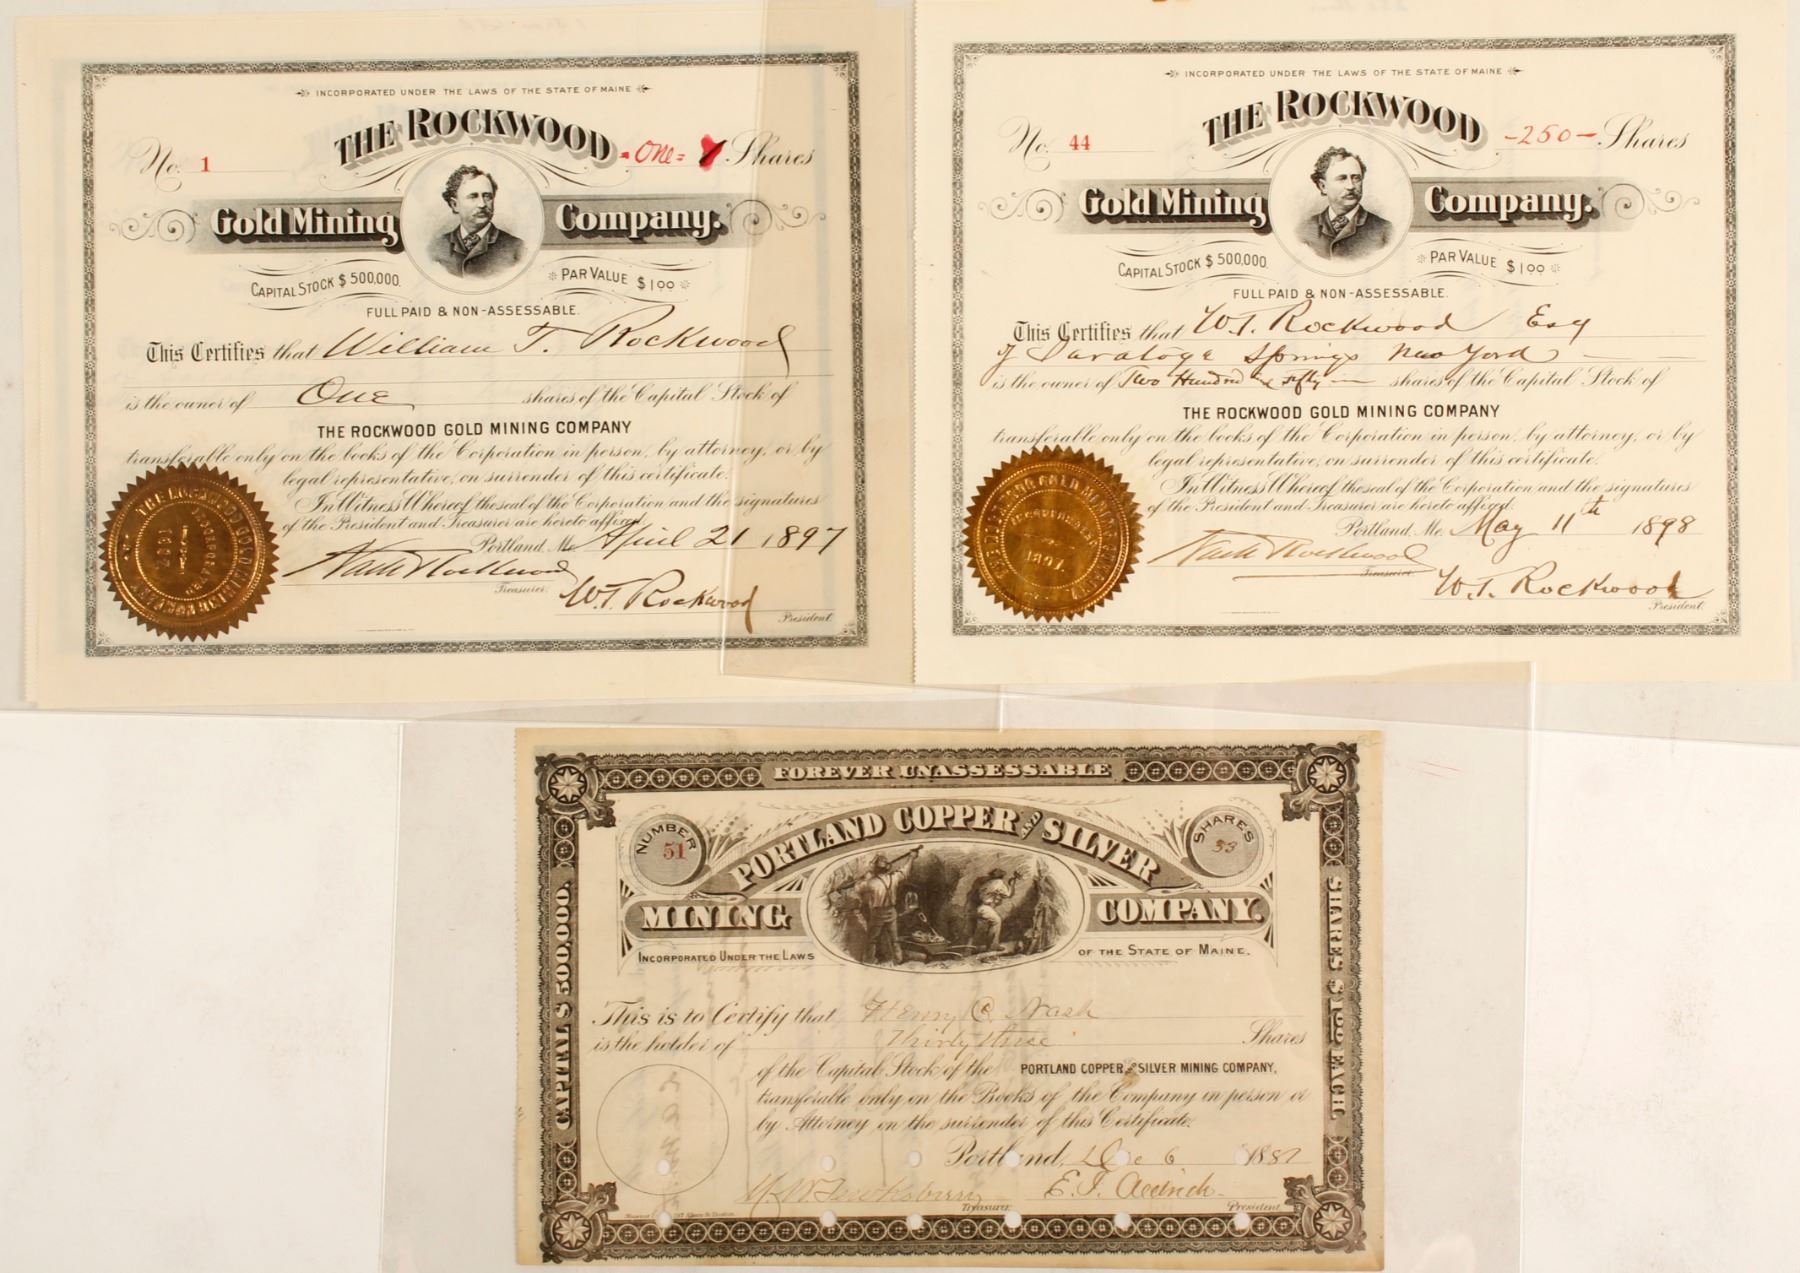 INCORPORATED UNDER THE LAWS OF THE STATE OF MAINE
No. 1
THE ROCKWOOD
-One= 1 Shares
Gold Mining Company.
CAPITAL STOCK $500,000.
PAR VALUE $1.00
FULL PAID & NON-ASSESSABLE.
This Certifies that William T. Rockwood
is the owner of One shares of the Capital Stock of
THE ROCKWOOD GOLD MINING COMPANY
transferable only on the books of the Corporation in person, by attorney, or by
legal representative, on surrender of this certificate.
In Witness Whereof the seal of the Corporation and the signatures
of the President and Treasurer are hereto affixed.
Portland, Me. April 21 1897
Rockwood
Treasurer.
W.T. Rockwood
President.
THE ROCKWOOD GOLD MINING COMPANY
INCORPORATED
1897
INCORPORATED UNDER THE LAWS OF THE STATE OF MAINE
No. 44
THE ROCKWOOD
-250- Shares
Gold Mining Company.
CAPITAL STOCK $500,000.
PAR VALUE $1.00
FULL PAID & NON-ASSESSABLE.
This Certifies that W.T. Rockwood Esq
of Saratoga Springs New York
is the owner of Two Hundred & fifty shares of the Capital Stock of
THE ROCKWOOD GOLD MINING COMPANY
transferable only on the books of the Corporation in person, by attorney, or by
legal representative, on surrender of this certificate.
In Witness Whereof the seal of the Corporation and the signatures
of the President and Treasurer are hereto affixed.
Portland, Me. May 11th 1898
Rockwood
Treasurer.
W.T. Rockwood
President.
THE ROCKWOOD GOLD MINING COMPANY
INCORPORATED
1897
FOREVER UNASSESSABLE
NUMBER
51
PORTLAND COPPER AND SILVER
SHARES
33
MINING COMPANY.
INCORPORATED UNDER THE LAWS OF THE STATE OF MAINE.
CAPITAL $500,000.
SHARES $1.00 EACH.
This is to Certify that Henry C. Nash
is the holder of Thirty three Shares
of the Capital Stock of the PORTLAND COPPER AND SILVER MINING COMPANY,
transferable only on the Books of the Company in person or
by Attorney on the surrender of this Certificate.
Portland, Dec 6 188
Tewksbury
Treasurer.
E.T. Aldrich
President.